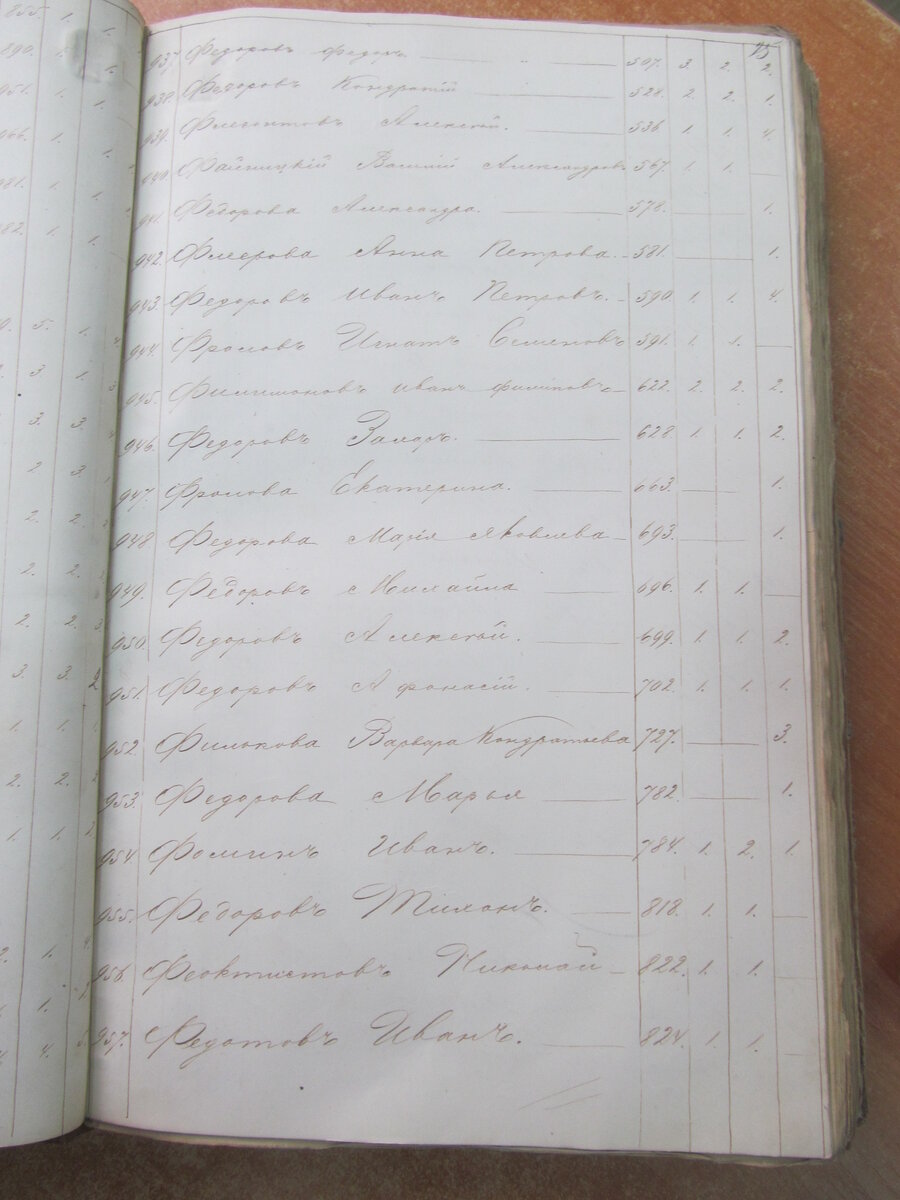 25
937. Федоровъ Федоръ 507. 3. 2. 2.
938. Федоровъ Кондратій 528. 2. 2. 1.
939. Алексѣй. 536. 1. 1. 4.
940. Василій Александровъ 567. 1. 1. —
941. Федорова Александра. 578. — 1.
942. Анна Петрова. 581. — 1.
943. Федоровъ Иванъ Петровъ. 590. 1. 1. 4.
944. Фроловъ Игнатъ Семеновъ 591. 1. 1. —
945. Филимоновъ Иванъ Филиповъ 622. 2. 2. 2.
946. Федоровъ Захаръ. 628. 1. 1. 2.
947. Фролова Екатерина. 663. — 1.
948. Федорова Марія Яковлева 693. — 1.
949. Федоровъ Михайла 696. 1. 1. —
950. Федоровъ Алексѣй. 699. 1. 1. 2.
951. Федоровъ Афонасій. 702. 1. 1. 1.
952. Филькова Варвара Кондратьева 727. — 3.
953. Федорова Марья 782. — 1.
954. Фоминъ Иванъ. 784. 1. 2. 1.
955. Федоровъ Тихонъ. 818. 1. 1. —
956. Феоктистовъ Николай 822. 1. 1. —
957. Федотовъ Иванъ. 824. 1. 1. —